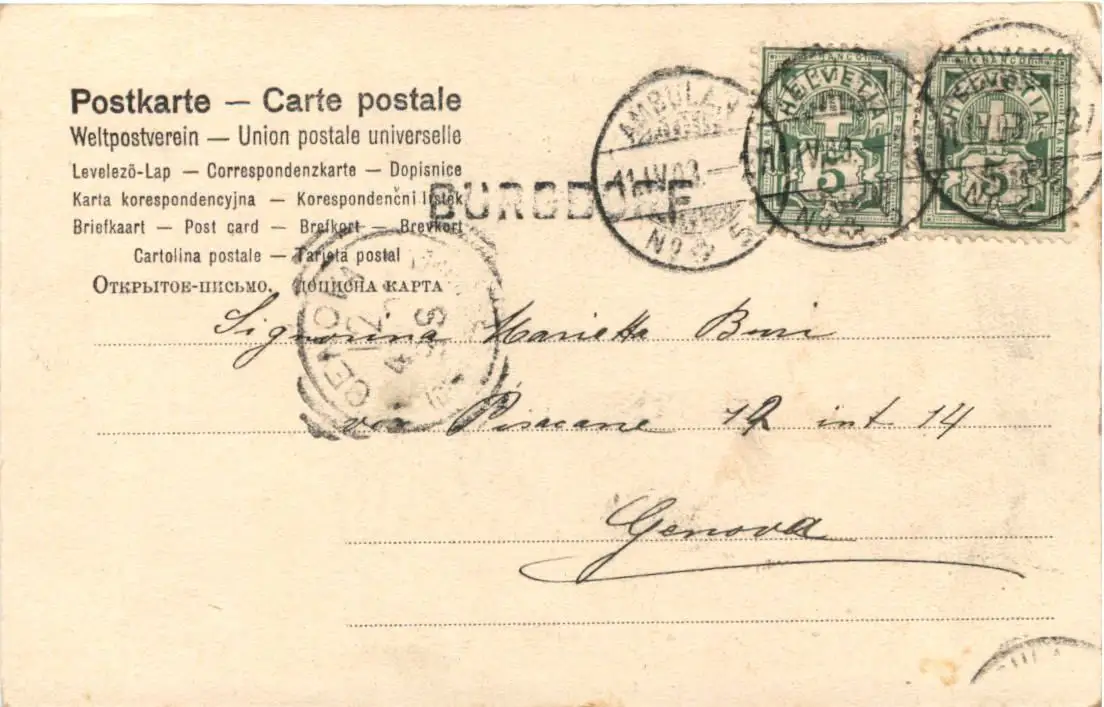 Postkarte — Carte postale
Weltpostverein — Union postale universelle
Levelező-Lap — Correspondenzkarte — Dopisnice
Karta korespondencyjna — Korespondenční lístek
Briefkaart — Post card — Brefkort — Brevkort
Cartolina postale — Tarjeta postal
Открытое-письмо. Дописна карта
BURGDORF
AMBULANT
11.IV.03.
No 5
FRANCO
HELVETIA
5
FRANCO
HELVETIA
5
GENOVA
12
4
S
Signorina Marietta Buri
via Pisacane 12 int 14
Genova